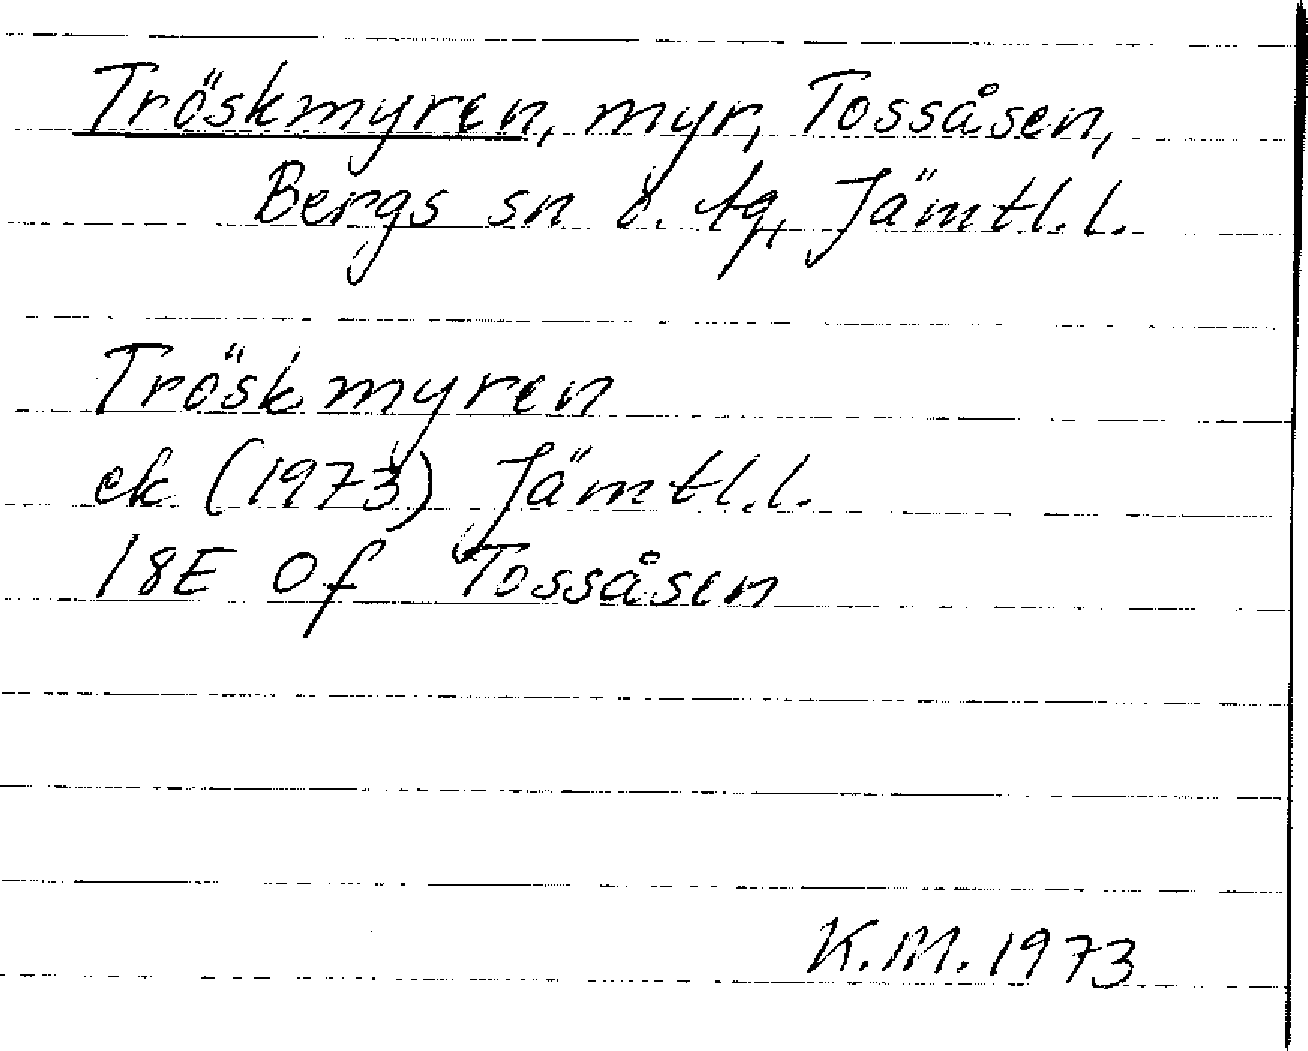 Tröskmyren, myr, Tossåsen,
Bergs sn o. tg, Jämtl. l.
Tröskmyren
ek (1973) Jämtl. l.
18E 0f Tossåsen
K.M. 1973